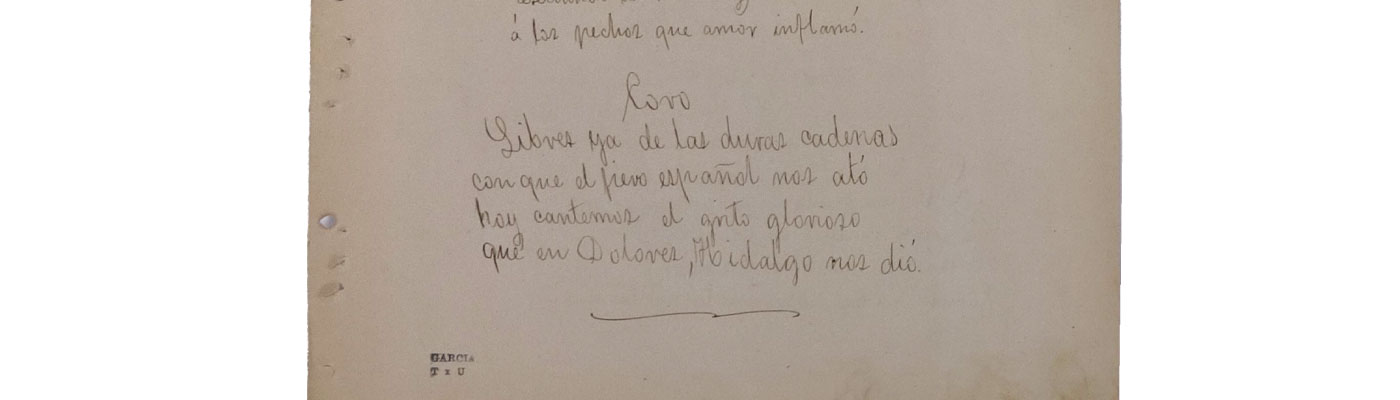 á los pechos que amor inflamó.
Coro
Libres ya de las duras cadenas
con que el fiero español nos ató
hoy cantemos el grito glorioso
que en Dolores, Hidalgo nos dió.
GARCIA
T z U